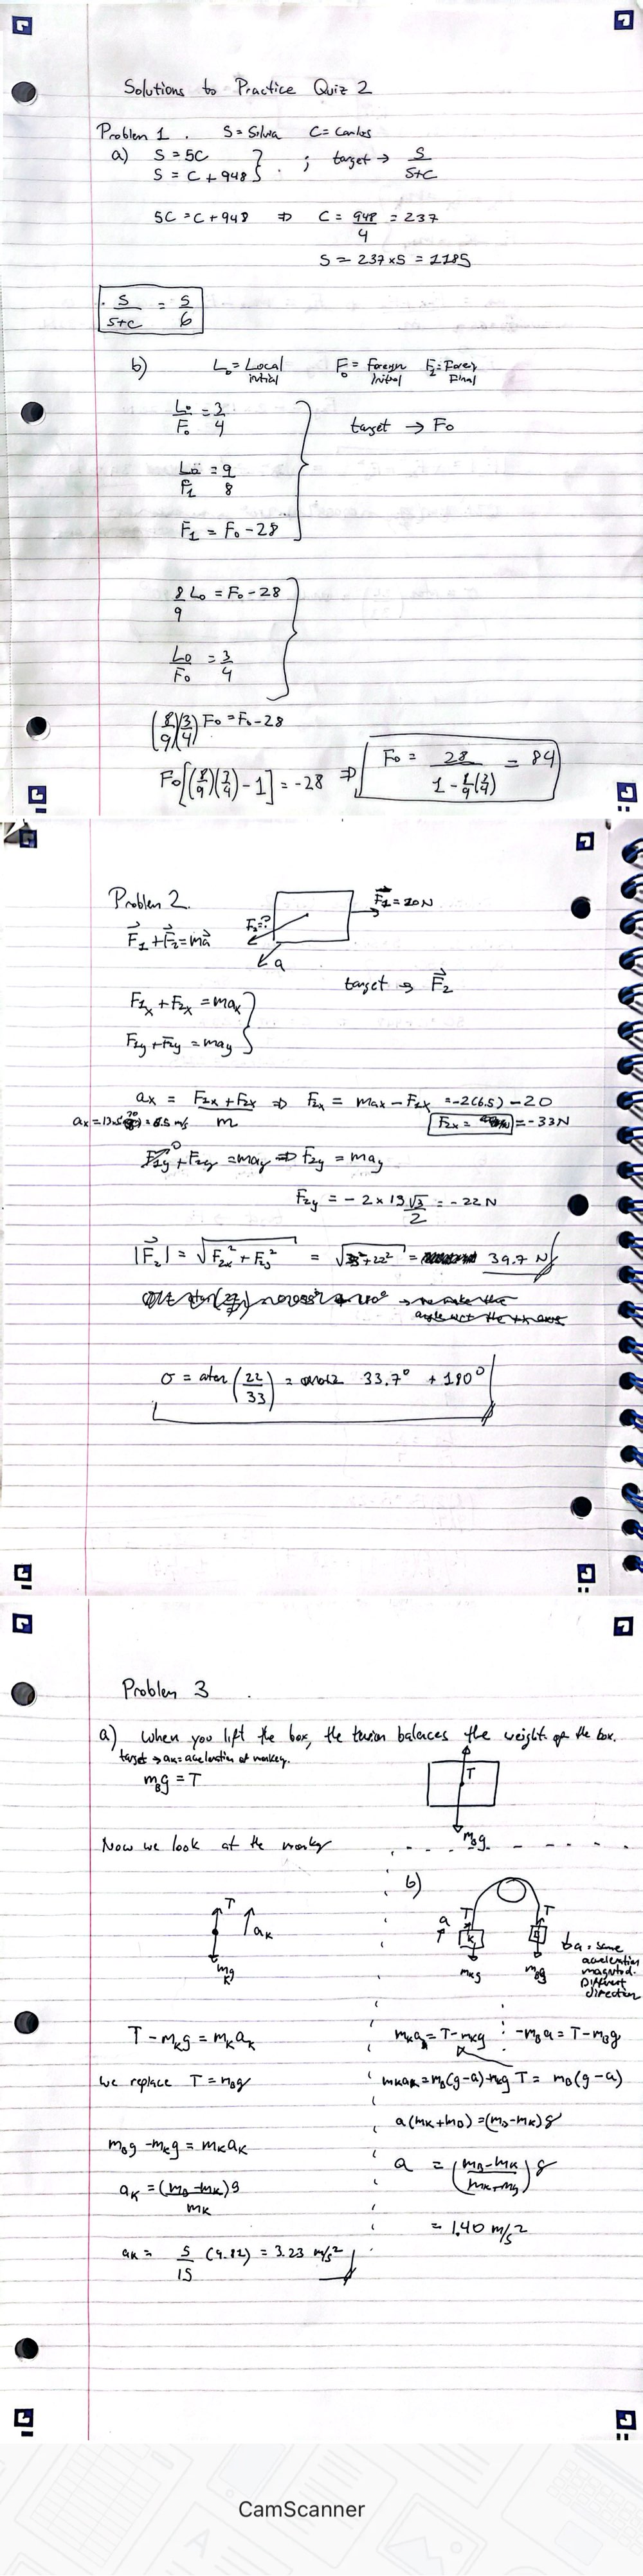 Solutions to Practice Quiz 2
Problem 1. S = Silvia C = Carlos
a) S = 5C
S = C + 948 } ; target → S/(S+C)
5C = C + 948 ⇒ C = 948/4 = 237
S = 237 x 5 = 1185
S/(S+C) = 5/6
b) L₀ = Local initial F₀ = Foreign Initial F₁ = Foreign Final
L₀/F₀ = 3/4 target → F₀
L₀/F₁ = 9/8
F₁ = F₀ - 28
8/9 L₀ = F₀ - 28
L₀/F₀ = 3/4
(8/9)(3/4) F₀ = F₀ - 28
F₀[(8/9)(3/4) - 1] = -28 ⇒ F₀ = 28/(1 - 8/9(3/4)) = 84
Problem 2.
F₁ = 20N
F₂ = ?
F₁ + F₂ = ma
a
target → F₂
F₁x + F₂x = max
F₁y + F₂y = may
ax = (F₁x + F₂x)/m ⇒ F₂x = max - F₁x = -2(6.5) - 20
F₂x = = -33N
F₁y⁰ + F₂y = may ⇒ F₂y = may
F₂y = -2 x 13 √3/2 = -22 N
|F₂| = √(F₂x² + F₂y²) = √(33² + 22²) = 39.7 N
σ = atan (22/33) = 33.7° + 180°
Problem 3
a) When you lift the box, the tension balances the weight of the box.
target → aK = acceleration of monkey.
mBg = T
T
mBg
Now we look at the monkey
T aK
mKg
T - mKg = mKaK
We replace T = mBg
mBg - mKg = mKaK
aK = (mB - mK)g/mK
aK = 5/15 (9.82) = 3.23 m/s²
b)
a T T
K
mKg mBg
a = same acceleration magnitud. Different direction
mKa = T - mKg -mBa = T - mBg
mKaK = mB(g-a) - mKg T = mB(g-a)
a(mK + mB) = (mB - mK)g
a = ((mB - mK)/(mK + mB)) g
= 1.40 m/s²
CamScanner